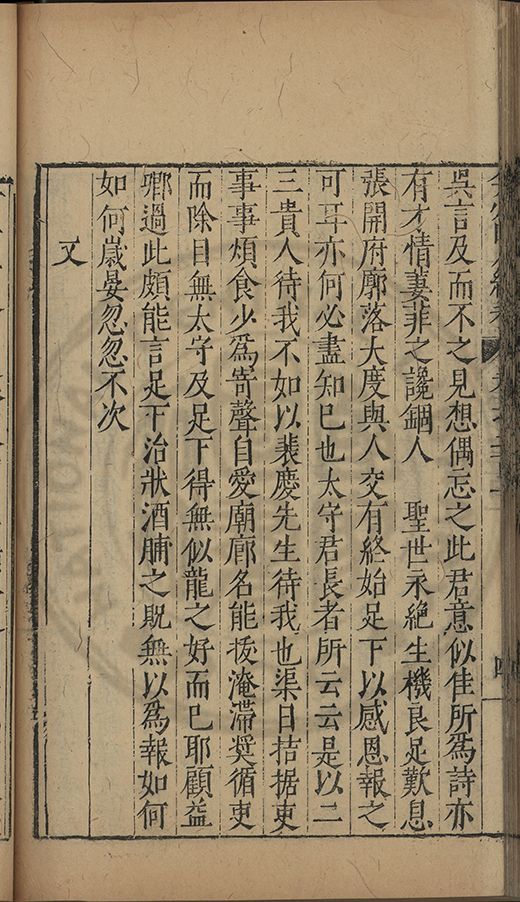 吳言及而不之見想偶忘之此君意似佳所爲詩亦
有才情萋菲之讒錮人　聖世永絶生機良足歎息
張開府廓落大度與人交有終始足下以感恩報之
可耳亦何必盡知已也太守君長者所云云是以二
三貴人待我不如以裴慶先生待我也渠日拮据吏
事事煩食少爲寄聲自愛廟廊名能拔淹滯奨循吏
而除目無太守及足下得無似龍之好而已耶顧益
卿過此頗能言足下治狀酒脯之貺無以爲報如何
如何嵗晏忽忽不次
又